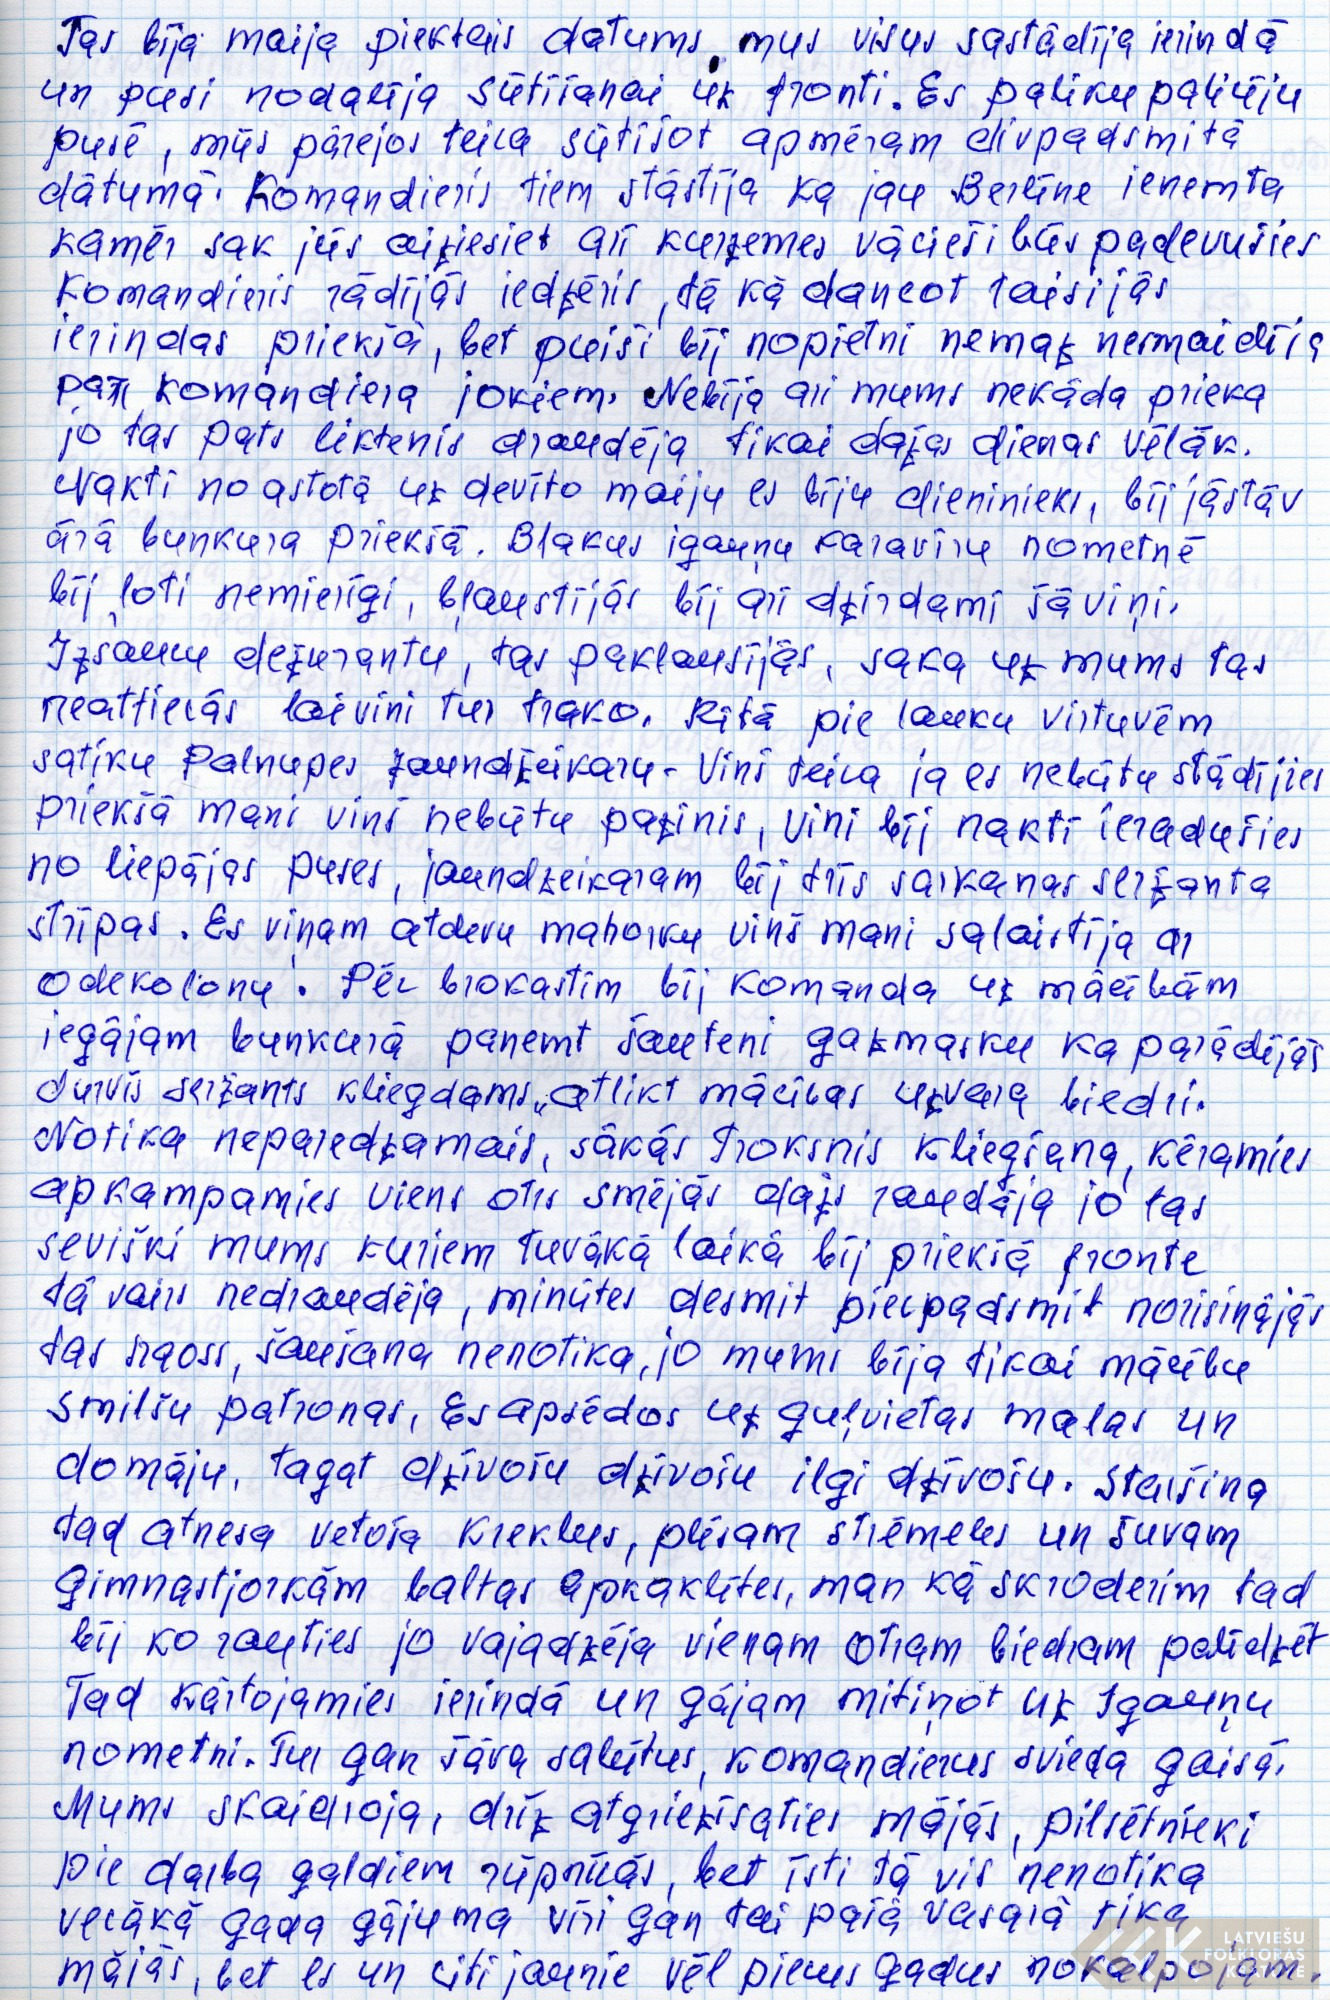 Tas bija maija piektais datums, mus visus sastādīja ierindā
un pusi nodalīja sūtīšanai uz fronti. Es paliku palicēju
pusē, mūs pārejos teica sūtīšot apmēram divpadsmitā
dātumā. Komandieris tiem stāstīja ka jau Berlīne ienemta
kamēr sak jūs aiziesiet arī kurzemes vācieši būs padevušies
Komandieris rādījās iedzēris, tā kā dancot taisijās
ierindas priekšā, bet puiši bij nopietni nemaz nesmaidīja
par komandiera jokiem. Nebija arī mums nekāda prieka
jo tas pats liktenis draudēja tikai dažas dienas vēlāk.
Nakti no astotā uz devīto maiju es biju dieninieks, bij jāstāv
ārā bunkura priekšā. Blakus igauņu karavīru nometnē
bij ļoti nemierīgi, bļaustījās bij arī dzirdami šāviņi.
Izsaucu dežurantu, tas paklausījās, saka uz mums tas
neattiecās lai viņi tur trako. Rītā pie lauku virtuvēm
satiku Palnupes Jaundzeikaru. Viņš teica ja es nebūtu stādījies
priekšā mani viņš nebūtu pazinis, viņi bij naktī ieradušies
no liepājas puses, jaundzeikaram bij trīs sarkanas seržanta
strīpas. Es viņam atdevu mahorku viņš mani salaistīja ar
odekolonu. Pēc brokastīm bij komanda uz mācībām
iegājam bunkurā paņemt šauteni gazmasku ka parādījās
durvīs seržants kliegdams „atlikt mācības uzvara biedri.
Notika neparedzamais, sākās troksnis kliegšana, kēramies
apkampamies viens otrs smējās dažs raudāja jo tas
seviški mums kuriem tuvākā laikā bij priekšā fronte
tā vairs nedraudēja, minūtes desmit piecpadsmit norisinājās
tas haoss, šaušana nenotika, jo mums bija tikai mācību
smilšu patronas, Es apsēdos uz guļvietas malas un
domāju, tagat dzīvošu dzīvošu ilgi dzīvošu. Staršina
tad atnesa vecoja kreklus, plēsam strēmeles un šuvam
gimnastjorkām baltas apkaklītes, man kā skroderim tad
bij ko rauties jo vajadzēja vienam otram biedram palīdzēt
Tad kārtojamies ierindā un gājam mitiņot uz Igauņu
nometni. Tur gan šāva salūtus, komandierus svieda gaisā.
Mums skaidroja, drīz atgriezīsaties mājās, pilsētnieki
pie darba galdiem rūpnīcās, bet īsti tā vis nenotika
vecākā gada gājuma vīri gan tai pašā vasarā tika
mājās, bet es un citi jaunie vēl piecus gadus nokalpojam.
LATVIEŠU
FOLKLORAS
KRĀTUVE